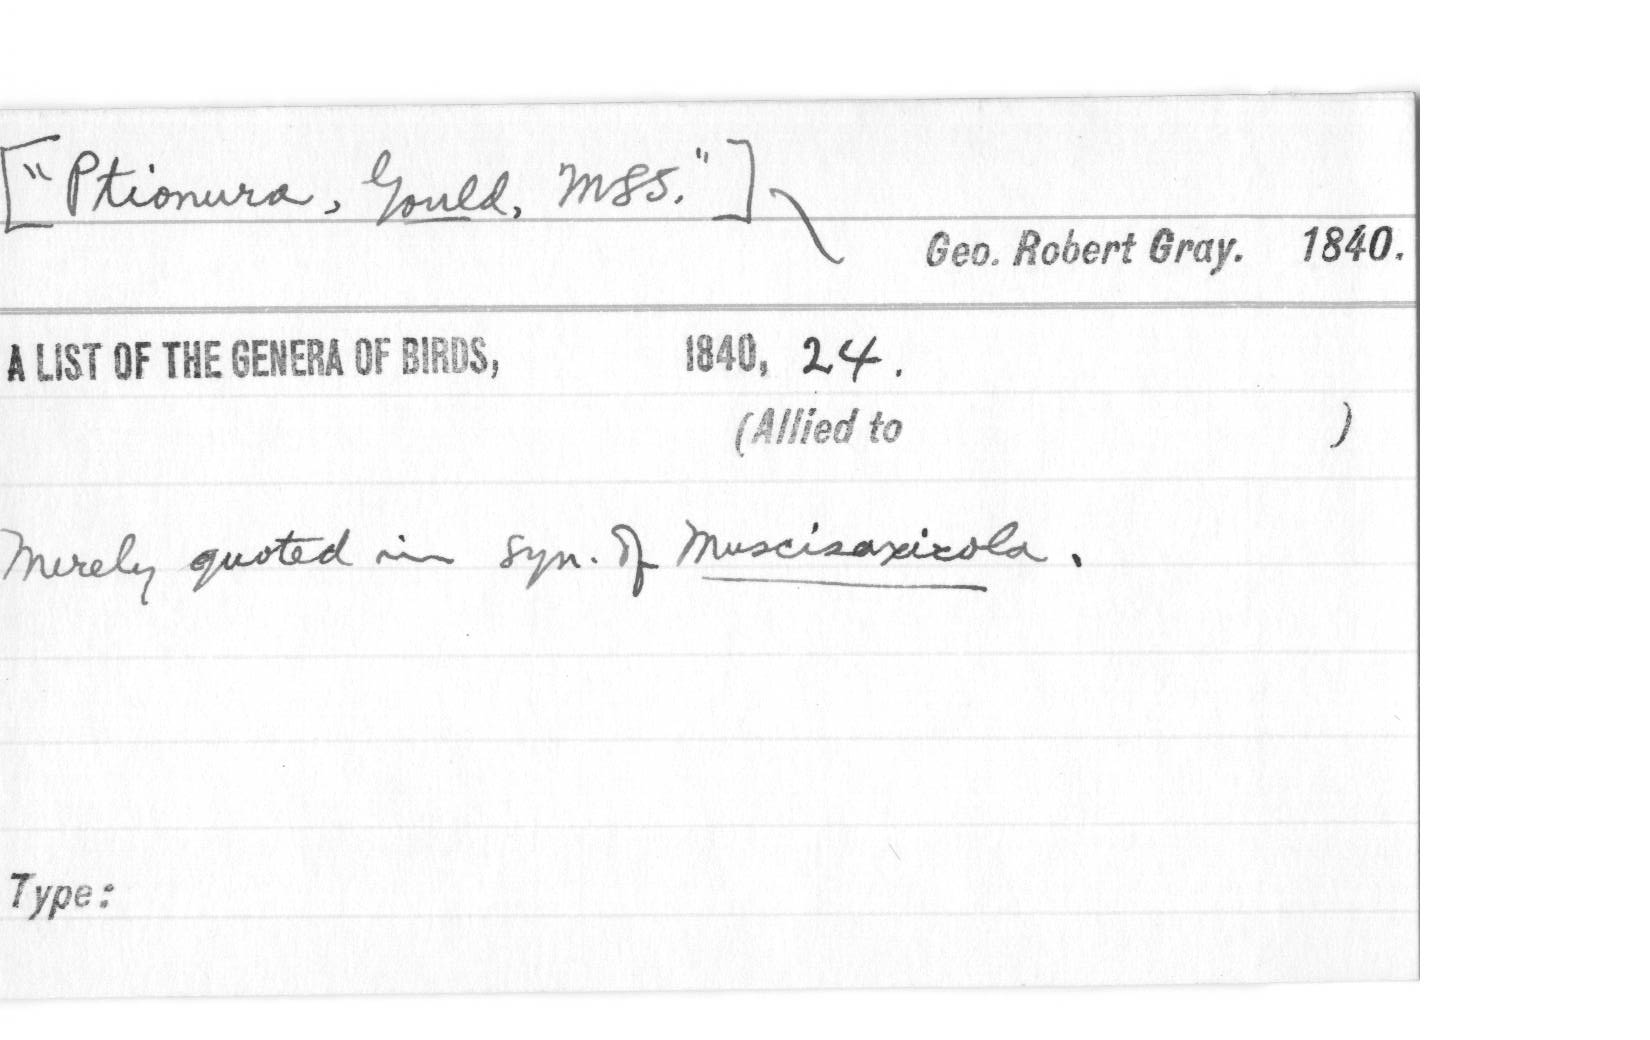 ["Ptionura, Gould, MSS."]
Geo. Robert Gray. 1840.
A LIST OF THE GENERA OF BIRDS, 1840, 24.
(Allied to )
Merely quoted in syn. of Muscisaxicola.
Type: